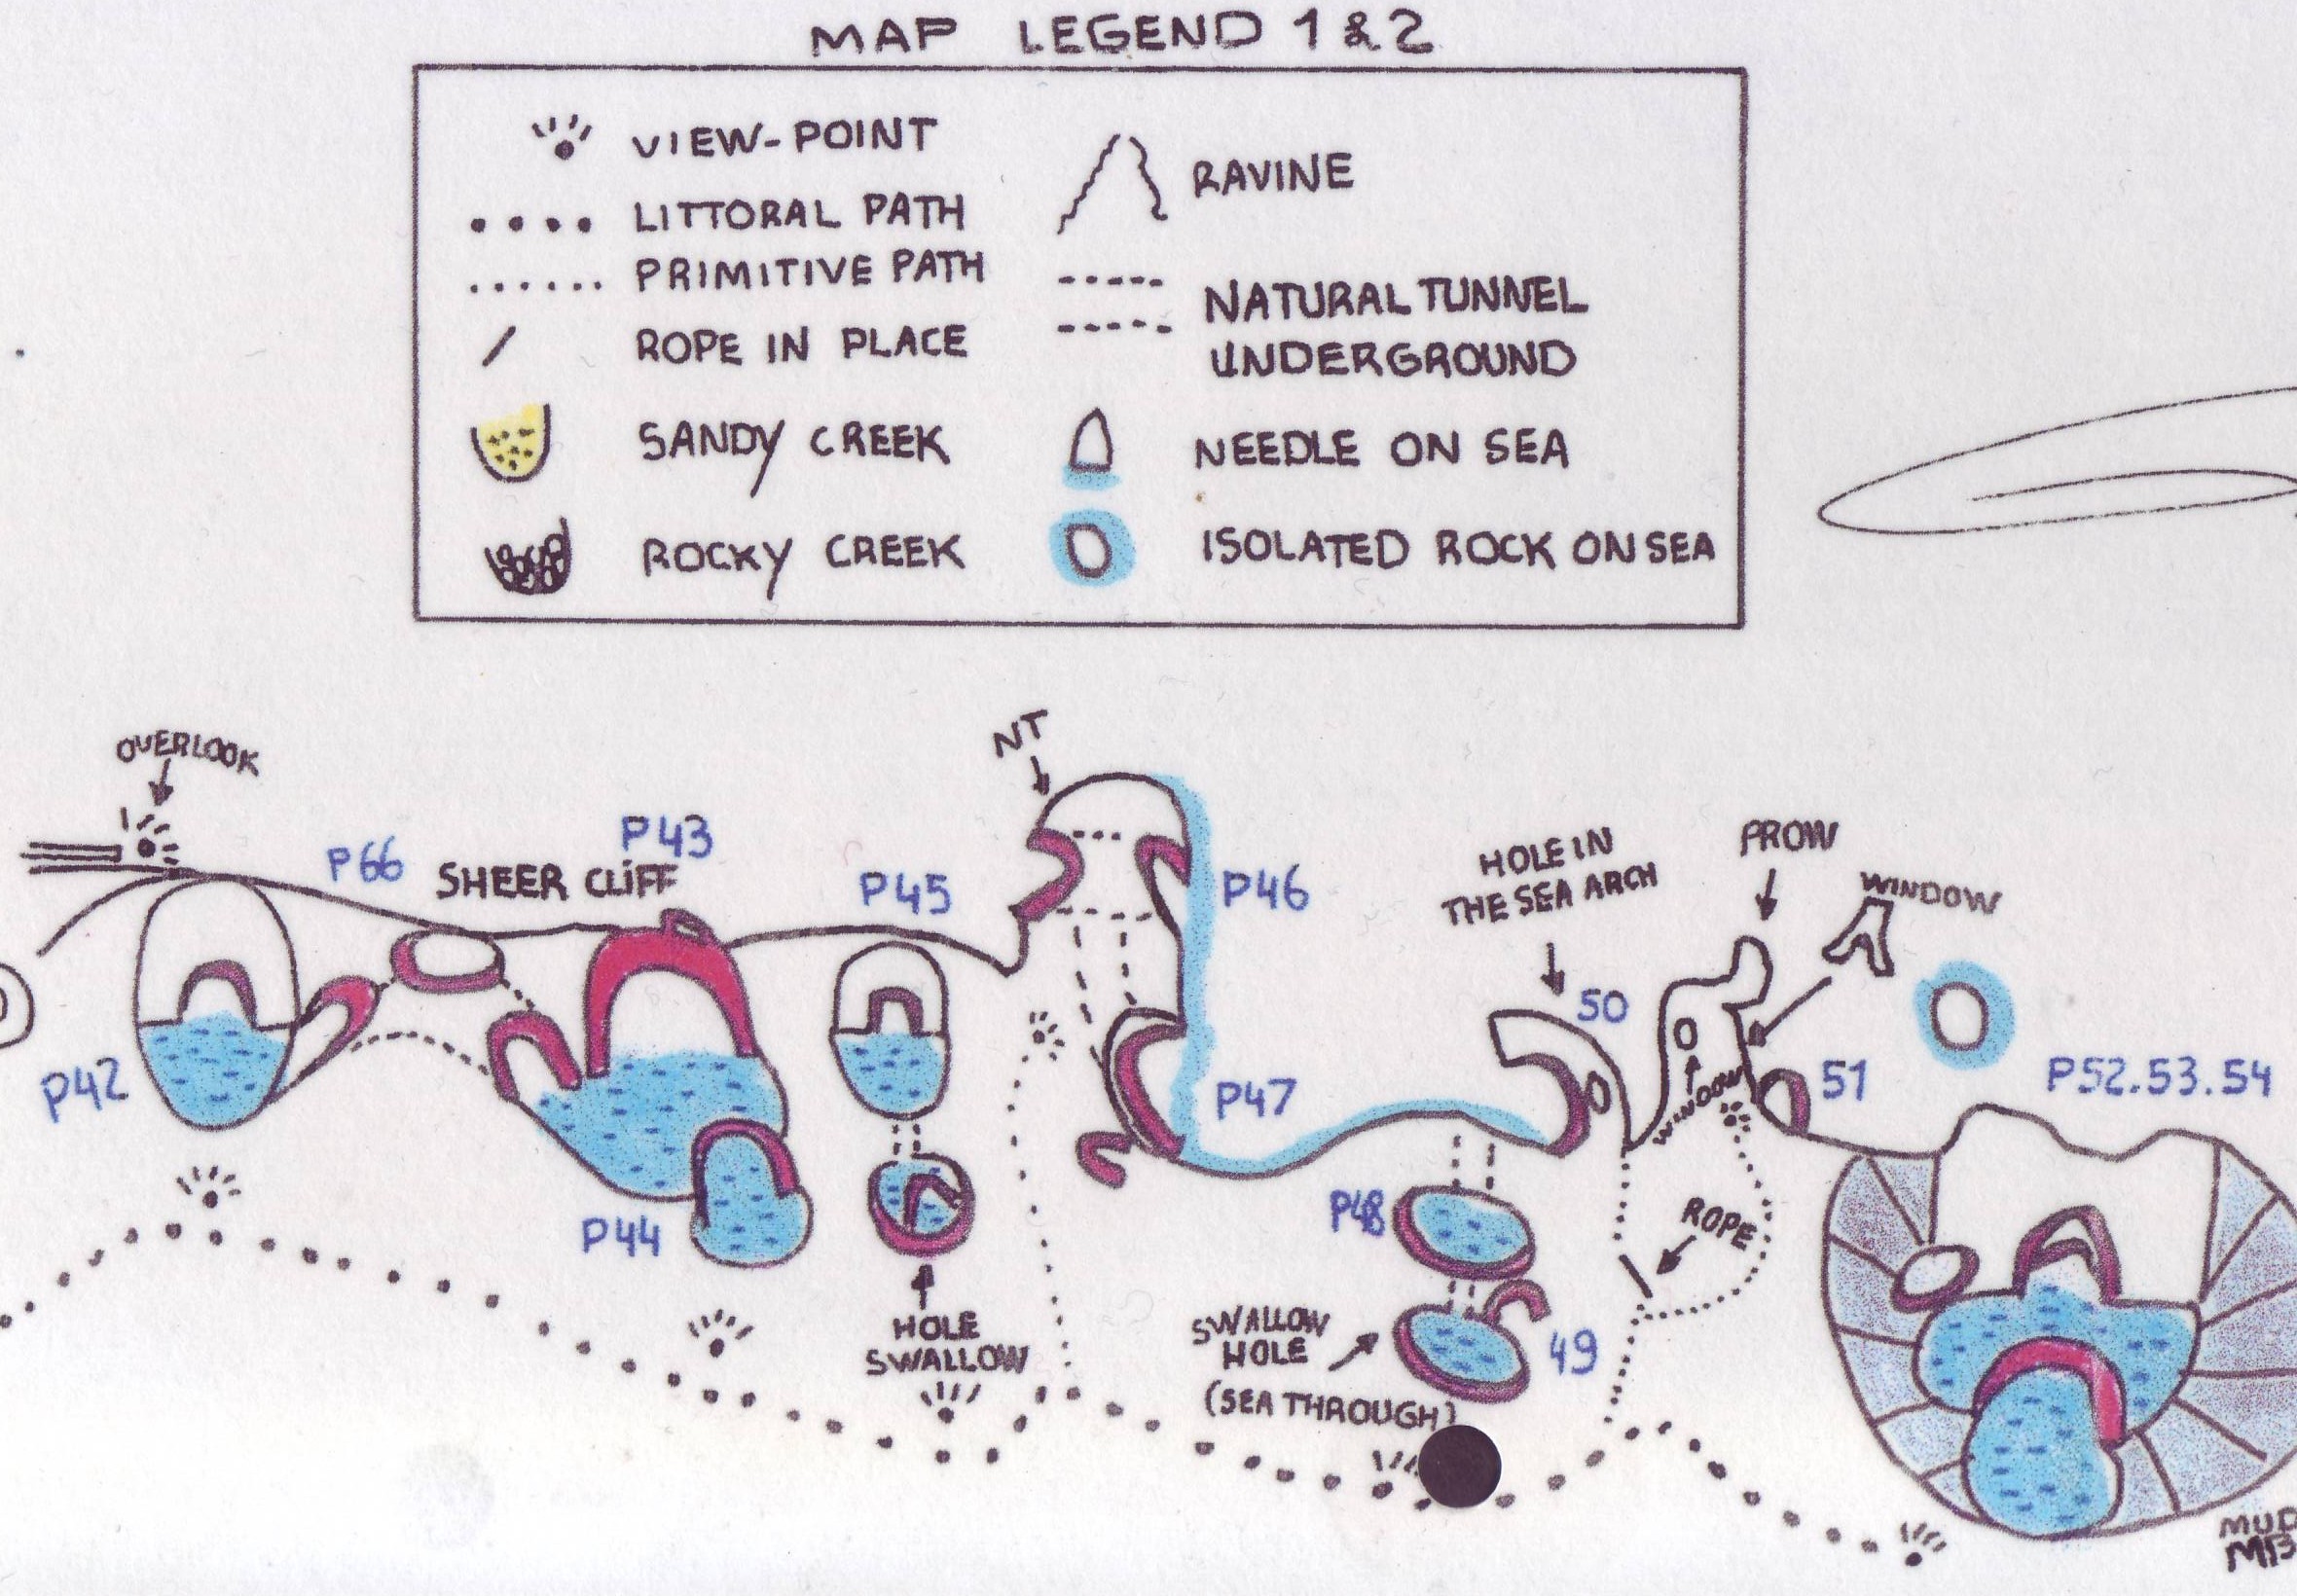 MAP LEGEND 1 & 2
VIEW-POINT
LITTORAL PATH
PRIMITIVE PATH
ROPE IN PLACE
SANDY CREEK
ROCKY CREEK
RAVINE
NATURAL TUNNEL
UNDERGROUND
NEEDLE ON SEA
ISOLATED ROCK ON SEA
OVERLOOK
P66
SHEER CLIFF
P43
P45
NT
P46
HOLE IN
THE SEA ARCH
PROW
WINDOW
50
P42
P47
WINDOW
51
P52.53.54
P44
P48
ROPE
HOLE
SWALLOW
SWALLOW
HOLE
(SEA THROUGH)
49